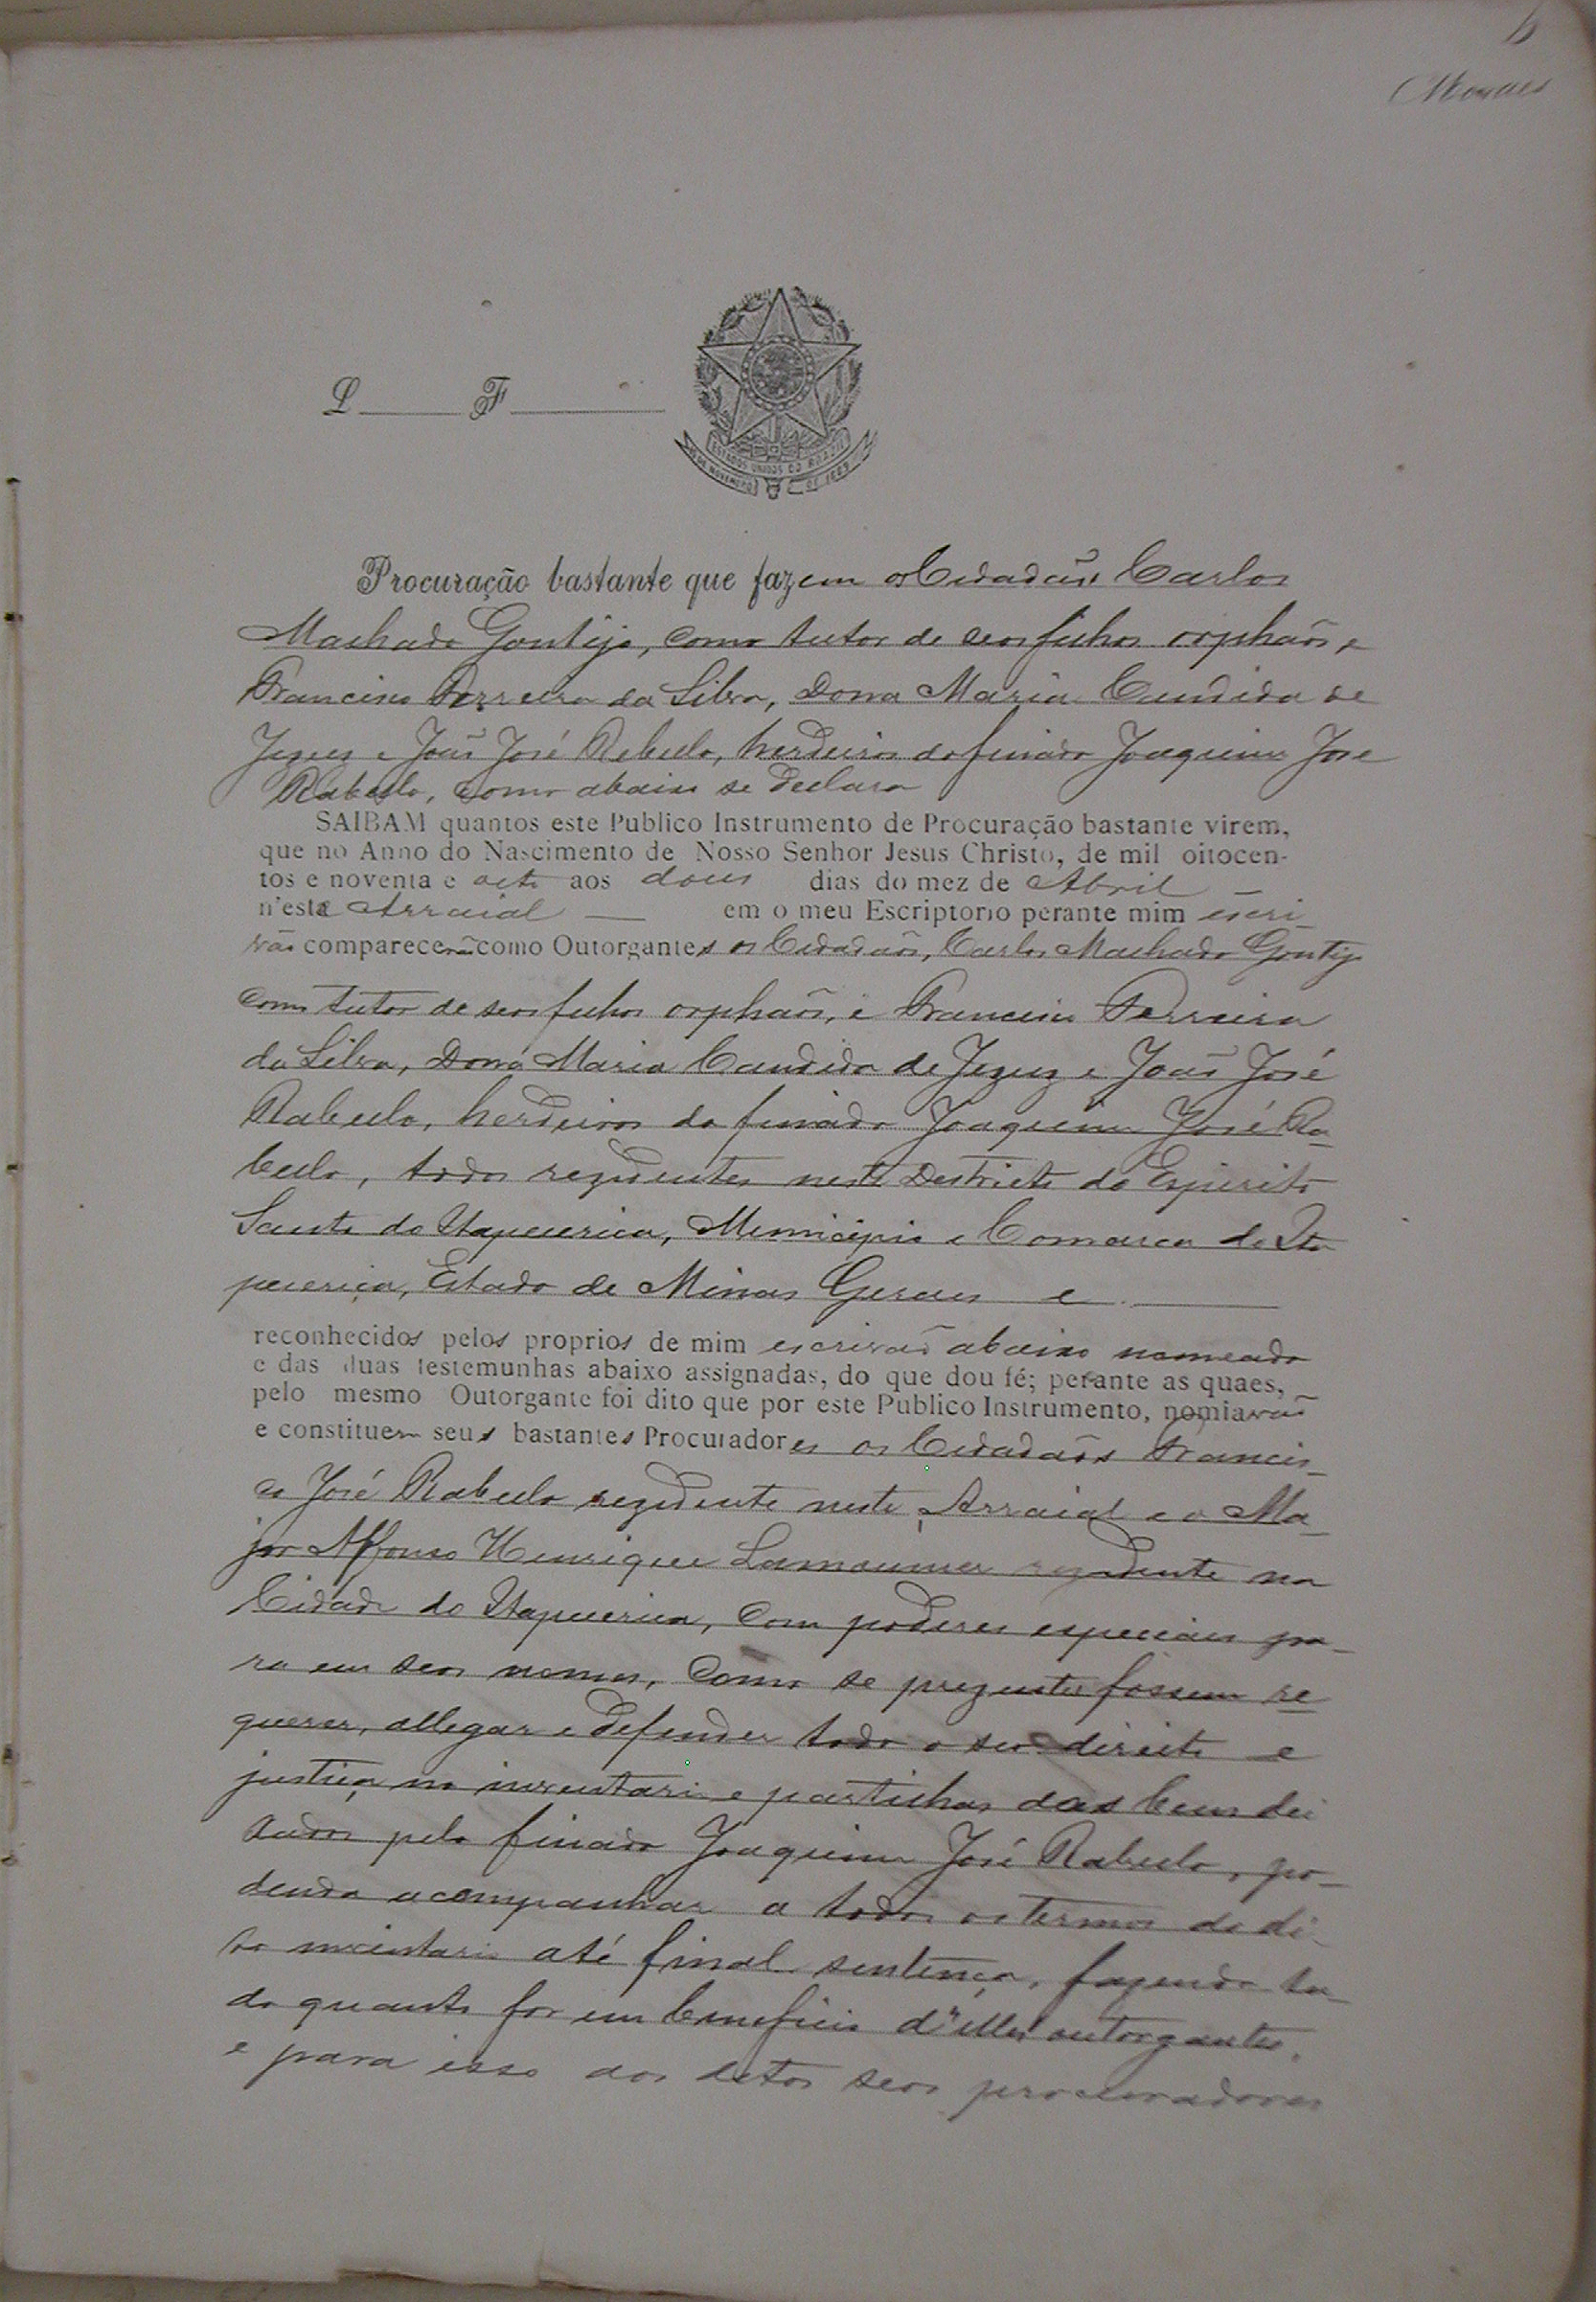 Moraes
L F
ESTADOS UNIDOS DO BRAZIL
15 DE NOVEMBRO DE 1889
Procuração bastante que fazem os Cidadãos Carlos
Machado Gontijo, como tutor de seos filhos orphaõs, e
Francisco Ferreira da Silva, Dona Maria Candida de
Jezuz e Joaõ José Rabello, herdeiros do finado Joaquim José
Rabello, como abaixo se declara
SAIBAM quantos este Publico Instrumento de Procuração bastante virem,
que no Anno do Nascimento de Nosso Senhor Jesus Christo, de mil oitocen-
tos e noventa e oito aos dous dias do mez de Abril —
n'este Arraial — em o meu Escriptorio perante mim escri-
vaõ compareceraõ como Outorgantes os Cidadaõs, Carlos Machado Gontijo
como tutor de seos filhos orphaõs, e Francisco Ferreira
da Silva, Dona Maria Candida de Jezuz e Joaõ José
Rabello, herdeiros do finado Joaquim José Ra-
bello, todos rezidentes neste Destricto do Espirito
Santo do Itapecerica, Municipio e Comarca do Ita
pecerica, Estado de Minas Geraes e —
reconhecidos pelos proprios de mim escrivaõ abaixo nomeado
e das duas testemunhas abaixo assignadas, do que dou fé; perante as quaes,
pelo mesmo Outorgante foi dito que por este Publico Instrumento, nomiavaõ
e constituem seus bastantes Procuradores os Cidadaõs Francis-
co José Rabello rezidente neste Arraial e o Ma-
jor Affonso Henrique Lamounier rezidente na
Cidade do Itapecerica, com poderes especiaes pa-
ra em seos nomes, como se prezentes fossem re
querer, allegar e defender todo o seo direito e
justiça no inventario e partilhas dos bens dei
xados pelo finado Joaquim José Rabello, po-
dendo acompanhar a todos os termos do di-
to inventario até final sentença, fazendo tu-
do quanto for em beneficio d'elles outorgantes,
e para isso aos ditos seos procuradores